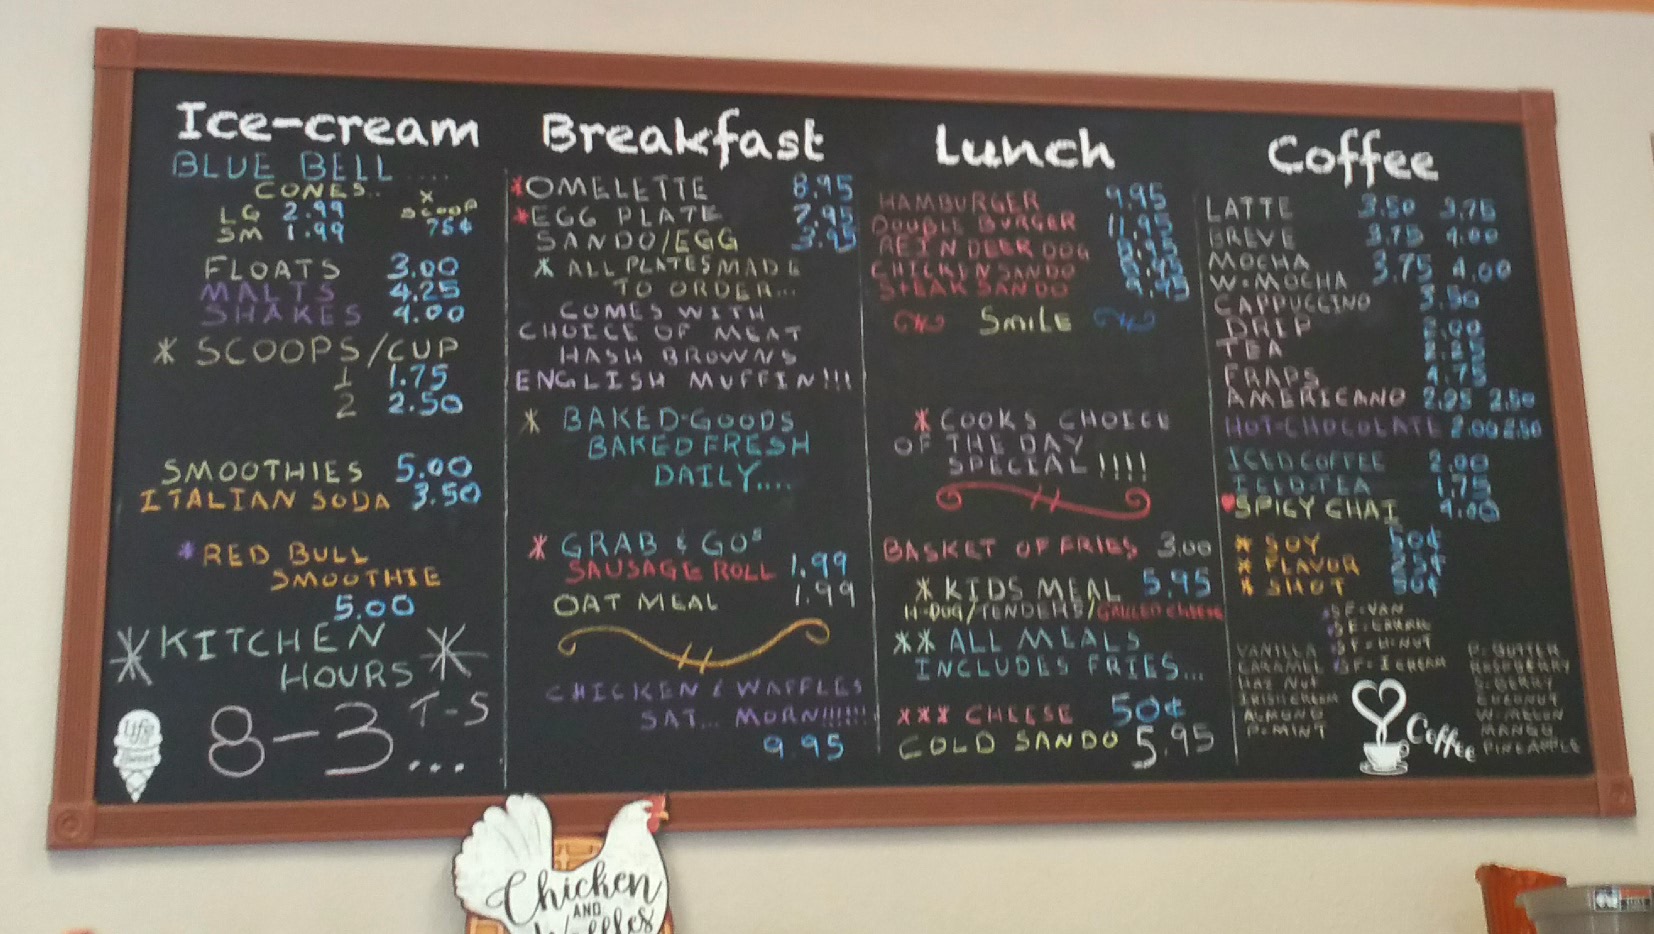 Ice-cream
BLUE BELL ....
CONES.. X
LG 2.99 SCOOP
SM 1.99 75¢
FLOATS 3.00
MALTS 4.25
SHAKES 4.00
* SCOOPS/CUP
1 1.75
2 2.50
SMOOTHIES 5.00
ITALIAN SODA 3.50
* RED BULL
SMOOTHIE
5.00
* KITCHEN *
HOURS
8-3 T-S
...
life
Sweet
Breakfast
* OMELETTE 8.95
* EGG PLATE 7.95
SANDO/EGG 3.95
* ALL PLATES MADE
TO ORDER...
COMES WITH
CHOICE OF MEAT
HASH BROWNS
ENGLISH MUFFIN!!!
* BAKED-GOODS
BAKED FRESH
DAILY....
* GRAB & GO'S
SAUSAGE ROLL 1.99
OAT MEAL 1.99
CHICKEN & WAFFLES
SAT... MORN!!!!!!
9.95
Lunch
HAMBURGER 9.95
DOUBLE BURGER 11.95
REINDEER DOG 8.95
CHICKEN SANDO 8.95
STEAK SANDO 9.95
SMiLE
* COOKS CHOICE
OF THE DAY
SPECIAL !!!!
BASKET OF FRIES 3.00
* KIDS MEAL 5.95
H-DOG/TENDERS/GRILLED CHEESE
** ALL MEALS
INCLUDES FRIES...
XXX CHEESE 50¢
COLD SANDO 5.95
Coffee
LATTE 3.50 3.75
BREVE 3.75 4.00
MOCHA 3.75 4.00
W-MOCHA
CAPPUCCINO 3.50
DRIP 2.00
TEA 2.25
FRAPS 4.75
AMERICANO 2.25 2.50
HOT-CHOCOLATE 2.00 2.50
ICED COFFEE 2.00
ICED TEA 1.75
SPICY CHAI 4.00
* SOY 50¢
* FLAVOR 25¢
* SHOT 50¢
SF-VAN
SF-CARML
SF-H-NUT
SF-I CREAM
VANILLA
CARAMEL
HAZ NUT
IRISH CREAM
ALMOND
P-MINT
P-BUTTER
RASPBERRY
S-BERRY
COCONUT
W-MELON
MANGO
PINEAPPLE
Coffee
Chicken
AND
Waffles